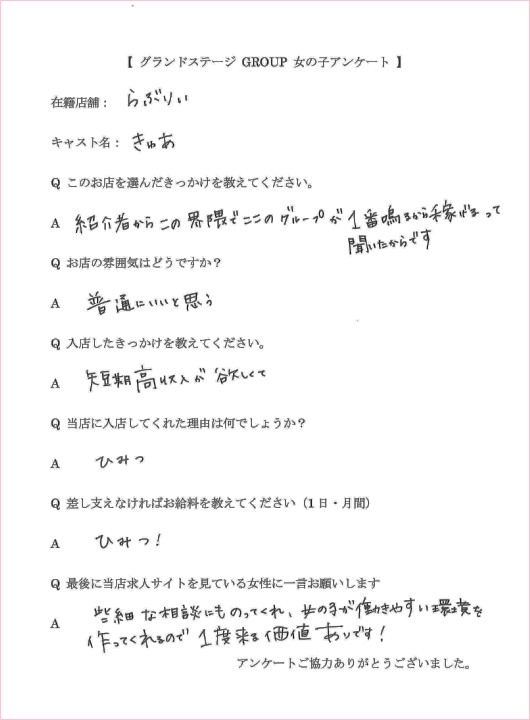 【 グランドステージ GROUP 女の子アンケート 】
在籍店舗： らぶりぃ
キャスト名： きゅあ
Q このお店を選んだきっかけを教えてください。
A 紹介者からこの界隈でここのグループが1番鳴るから稼げるって
聞いたからです
Q お店の雰囲気はどうですか？
A 普通にいいと思う
Q 入店したきっかけを教えてください。
A 短期高収入が欲しくて
Q 当店に入店してくれた理由は何でしょうか？
A ひみつ
Q 差し支えなければお給料を教えてください（1日・月間）
A ひみつ！
Q 最後に当店求人サイトを見ている女性に一言お願いします
A 些細な相談にものってくれ、女の子が働きやすい環境を
作ってくれるので1度来る価値ありです！
アンケートご協力ありがとうございました。